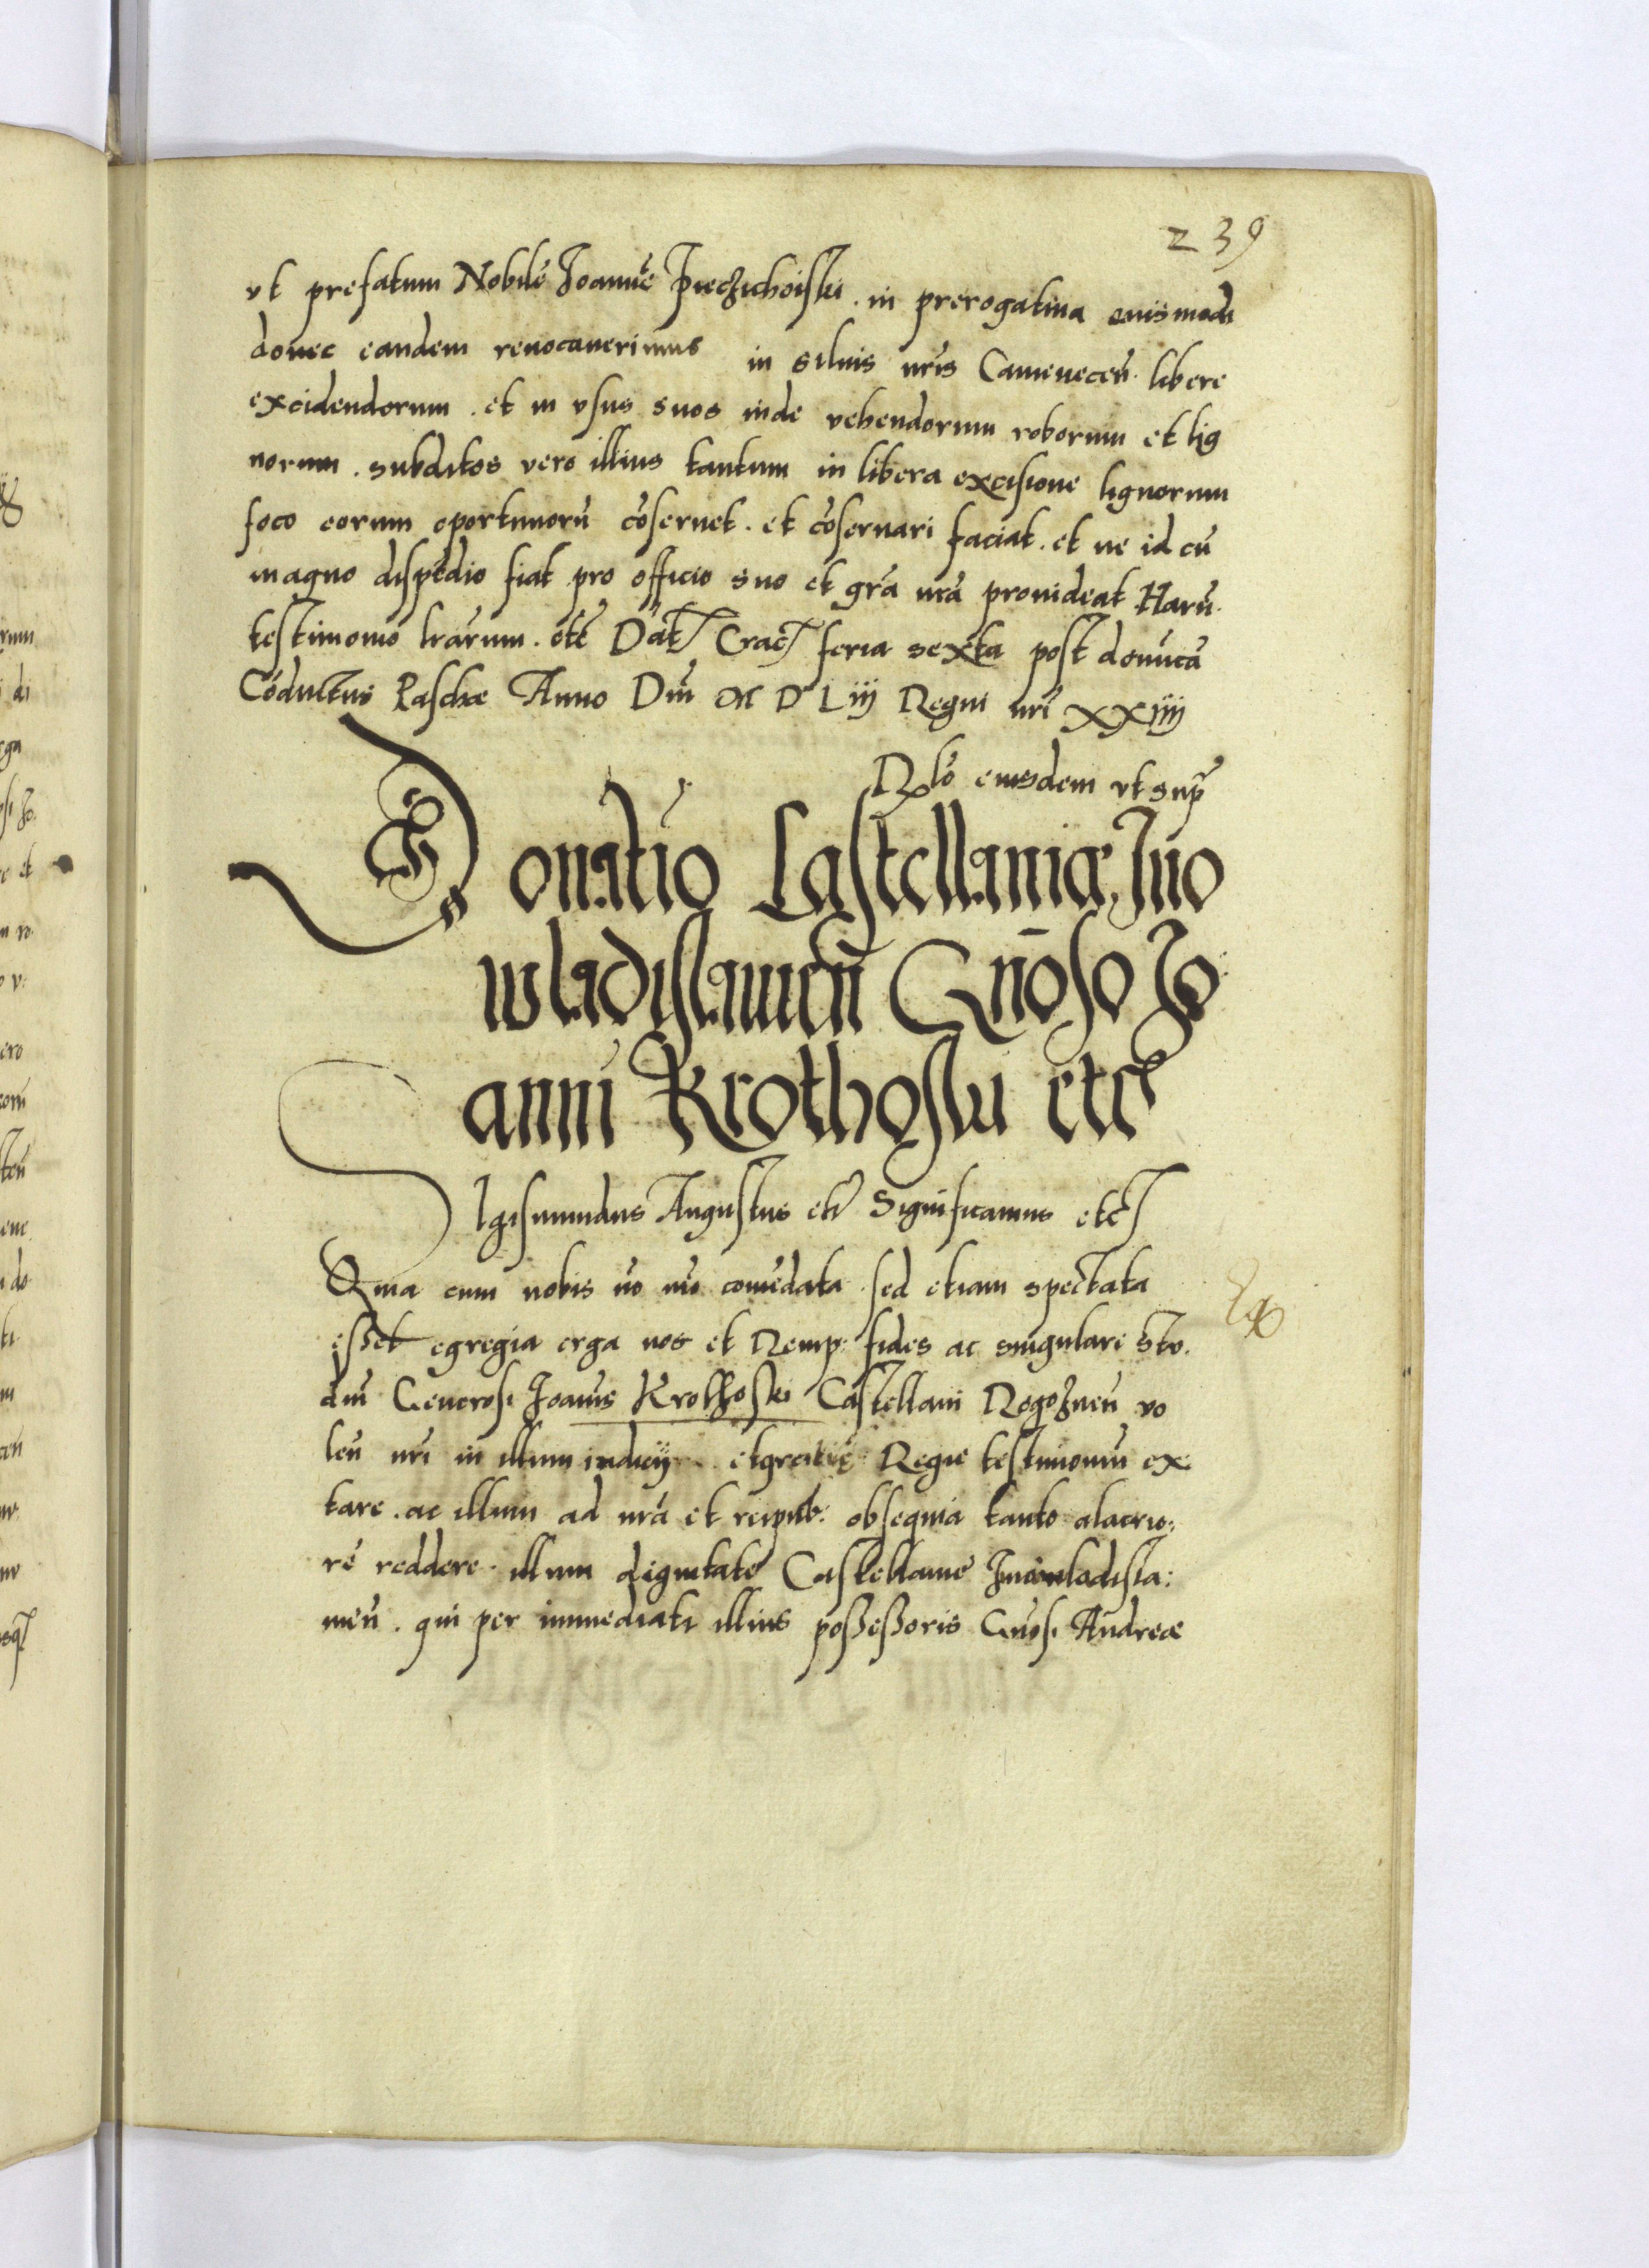 239
vt prefatum Nobilē Joannē Pieczichoiski. in prerogatiua euismodi
donec eandem reuocauerimus in siluis nrīs Camenecen̄. libere
excidendorum. et in vsus suos inde vehendorum roborum et lig
norum. subditos vero illius tantum in libera excisione lignorum
foco eorum oportunorū cōseruet. et cōseruari faciat. et ne id cū
magno dispēdio fiat pro officio suo et grā nrā prouideat Harū.
testimonio lrārum. etc̄ Dat Crac feria sexta post domīcā
Cōductus Paschæ Anno Dnī M D L iij Regni nrī XXiiij
Rlō eiusdem vt sup̄
Donatio Castellaniæ Juo
wladislauien̄ Gnōso Jo:
anni Krothoski etc
Sigismundus Augustus etc Significamus etc
Quia cum nobis nō mō comēdata. sed etiam spectata
eßet egregia erga nos et Remp: fides ac singulare stu.
diū Generosi Joanīs Krothoski Castellani Rogoznen̄ vo
len̄ nrī in illum iudicij et gratię Regie testimoniū ex.
tare. ac illum ad nrā et reipub: obsequia tanto alacrio:
rē reddere. illum dignitate Castellanie Juniwladisla:
uien̄. qui per immediati illius poßeßoris Gnōsi Andreæ